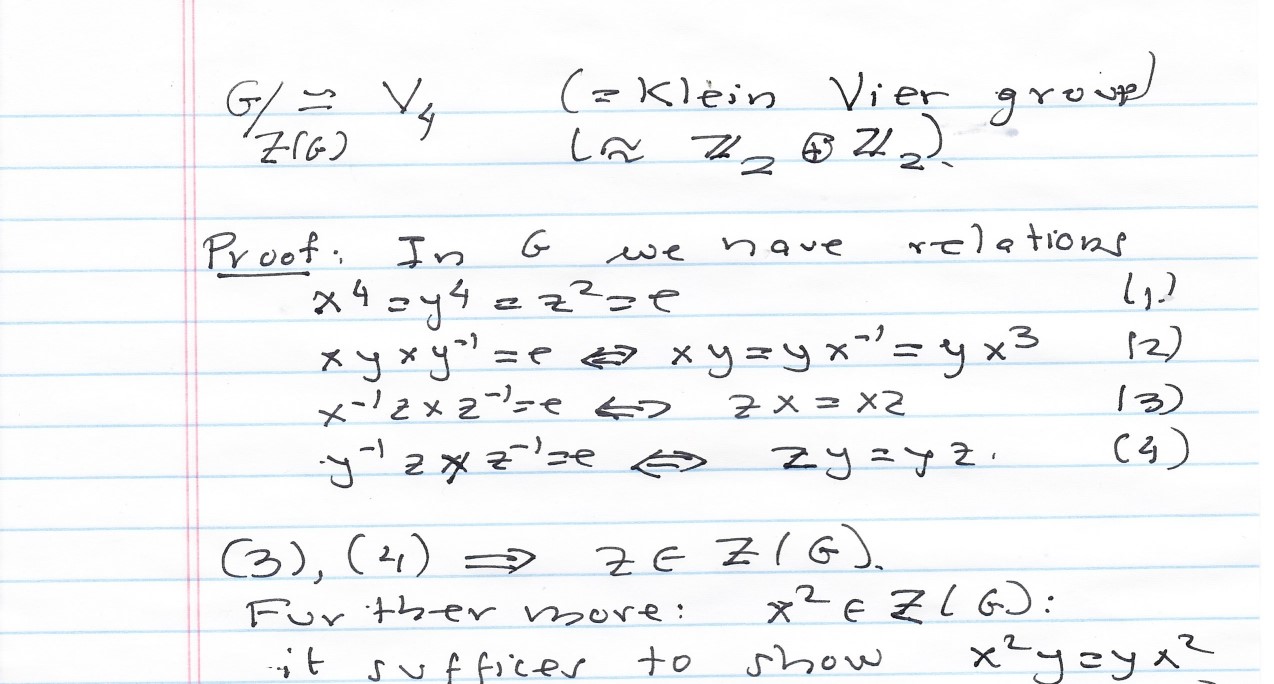 G/Z(G) ≃ V₄ (= Klein Vier group)
(≈ ℤ₂ ⊕ ℤ₂).
Proof: In G we have relations
x⁴ = y⁴ = z² = e (1)
xyxy⁻¹ = e ⟺ xy = yx⁻¹ = yx³ (2)
x⁻¹zxz⁻¹ = e ⟺ zx = xz (3)
y⁻¹zyz⁻¹ = e ⟺ zy = yz. (4)
(3), (4) ⟹ z ∈ Z(G).
Further more: x² ∈ Z(G):
it suffices to show x²y = yx²